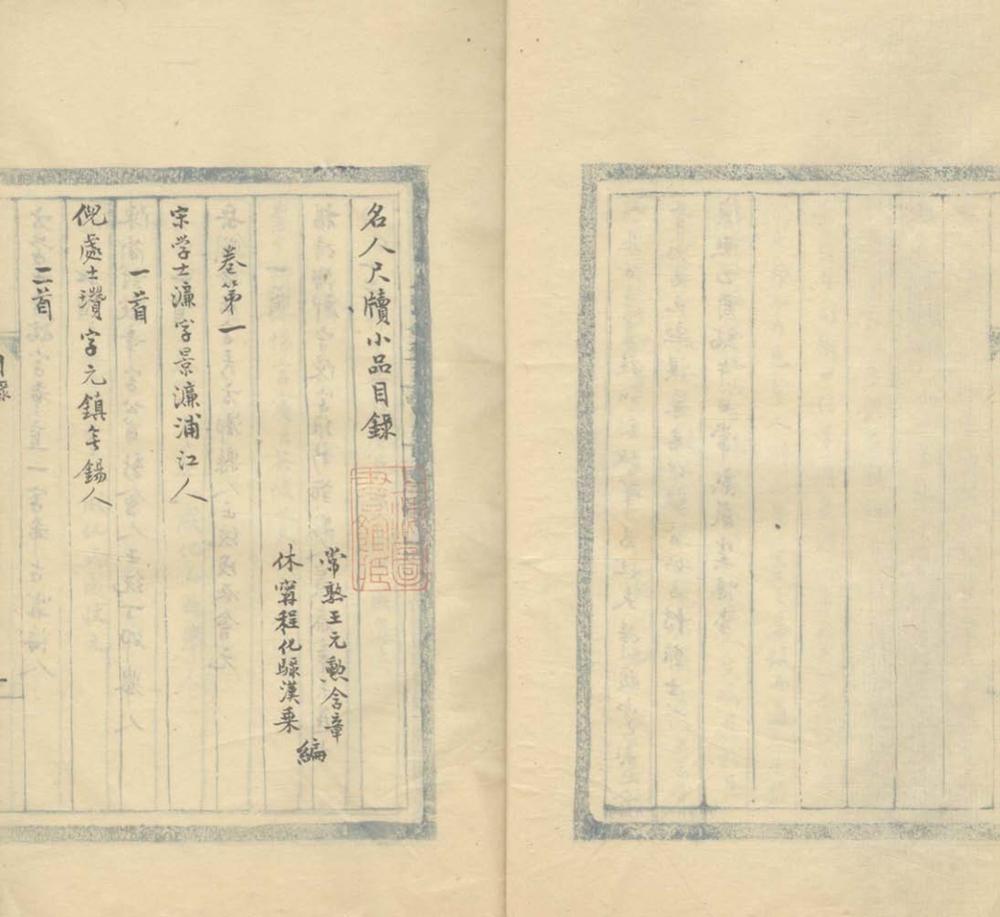 名人尺牘小品目錄
常熟王元勳含章
休寧程化騄漢乘
編
卷第一
宋学士濂字景濂浦江人
一首
倪處士瓚字元鎮无錫人
二首
目錄
一